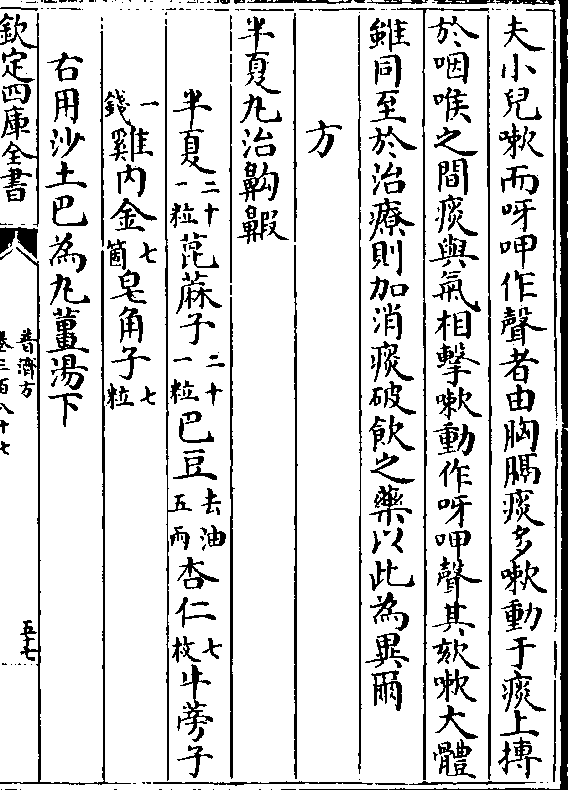 夫小兒嗽而呀呷作聲者由胸膈痰多嗽動于痰上摶
於咽喉之間痰與氣相擊嗽動作呀呷聲其欬嗽大體
雖同至於治療則加消痰破飲之藥以此為異爾
方
半夏丸治齁䶎
半夏二十一粒 萞蔴子二十一粒 巴豆去油五兩 杏仁七枚 牛蒡子
一錢 雞內金七箇 皂角子七粒
右用沙土巴為丸薑湯下
欽定四庫全書
普濟方
卷三百八十七
五十七